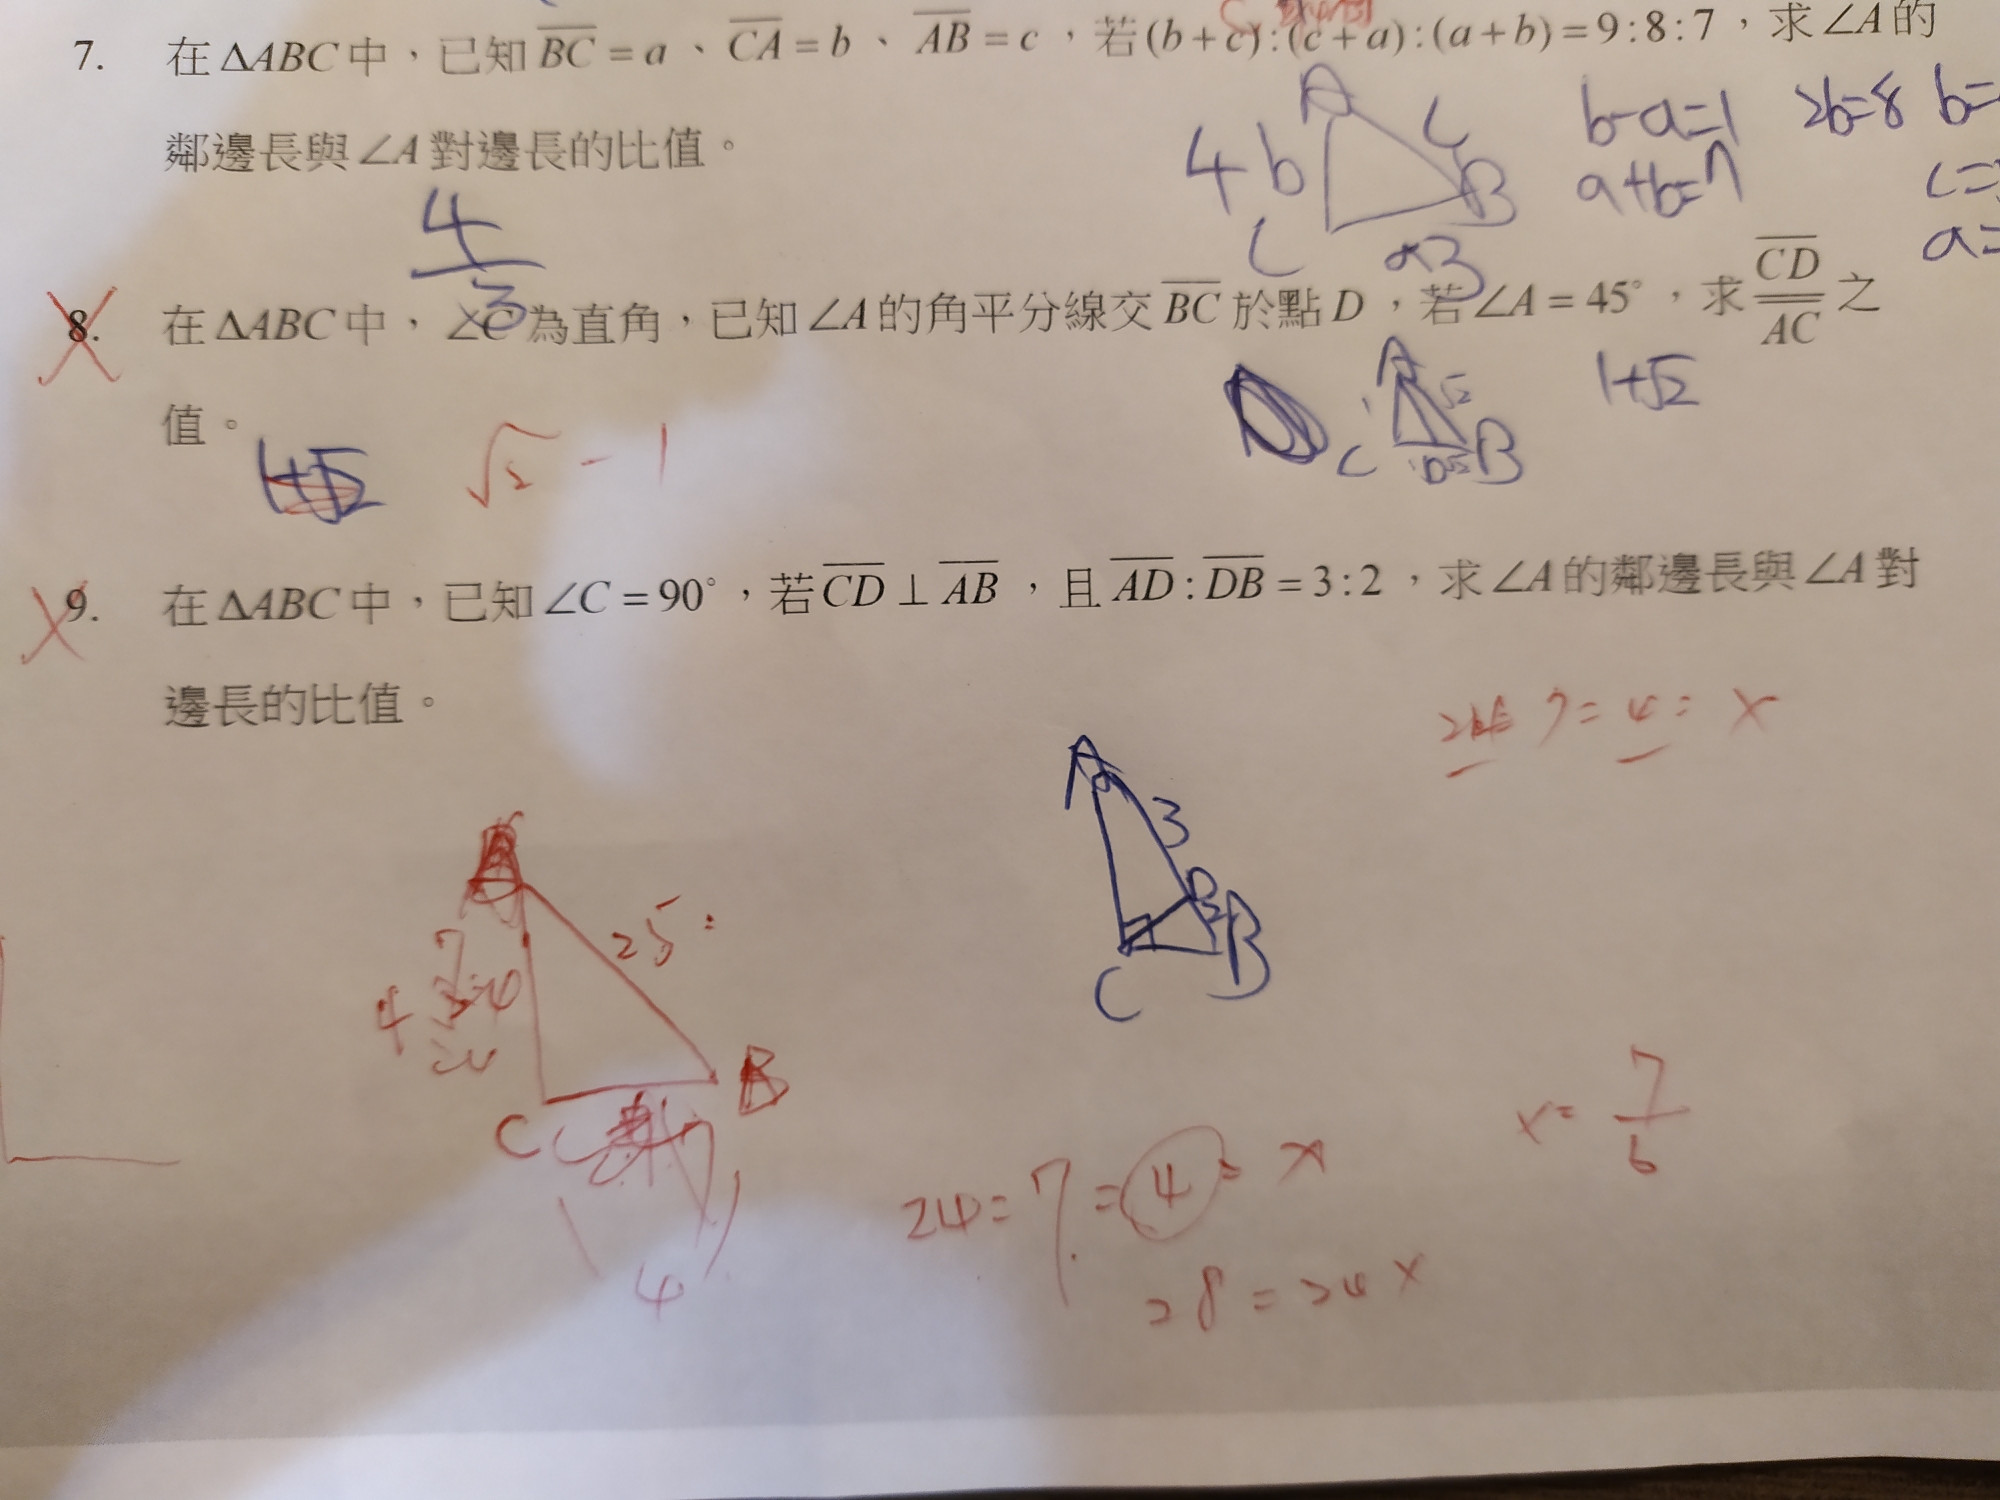 7. 在ΔABC中，已知BC=a、CA=b、AB=c，若(b+c):(c+a):(a+b)=9:8:7，求∠A的
鄰邊長與∠A對邊長的比值。
A
4 b
c
B
C
a 3
b-a=1
a+b=7
2b=8
b=
c=
a=
4
3
8. 在ΔABC中，∠C為直角，已知∠A的角平分線交BC於點D，若∠A=45°，求CD/AC之
值。
1+√2
√2-1
A
1
√2
C
D
√2
B
1+√2
9. 在ΔABC中，已知∠C=90°，若CD⊥AB，且AD:DB=3:2，求∠A的鄰邊長與∠A對
邊長的比值。
7=4=x
A
3
D
2
B
C
25:
7
4
24
C
B
7
4
24=7=4=x
28=24x
x=7/6